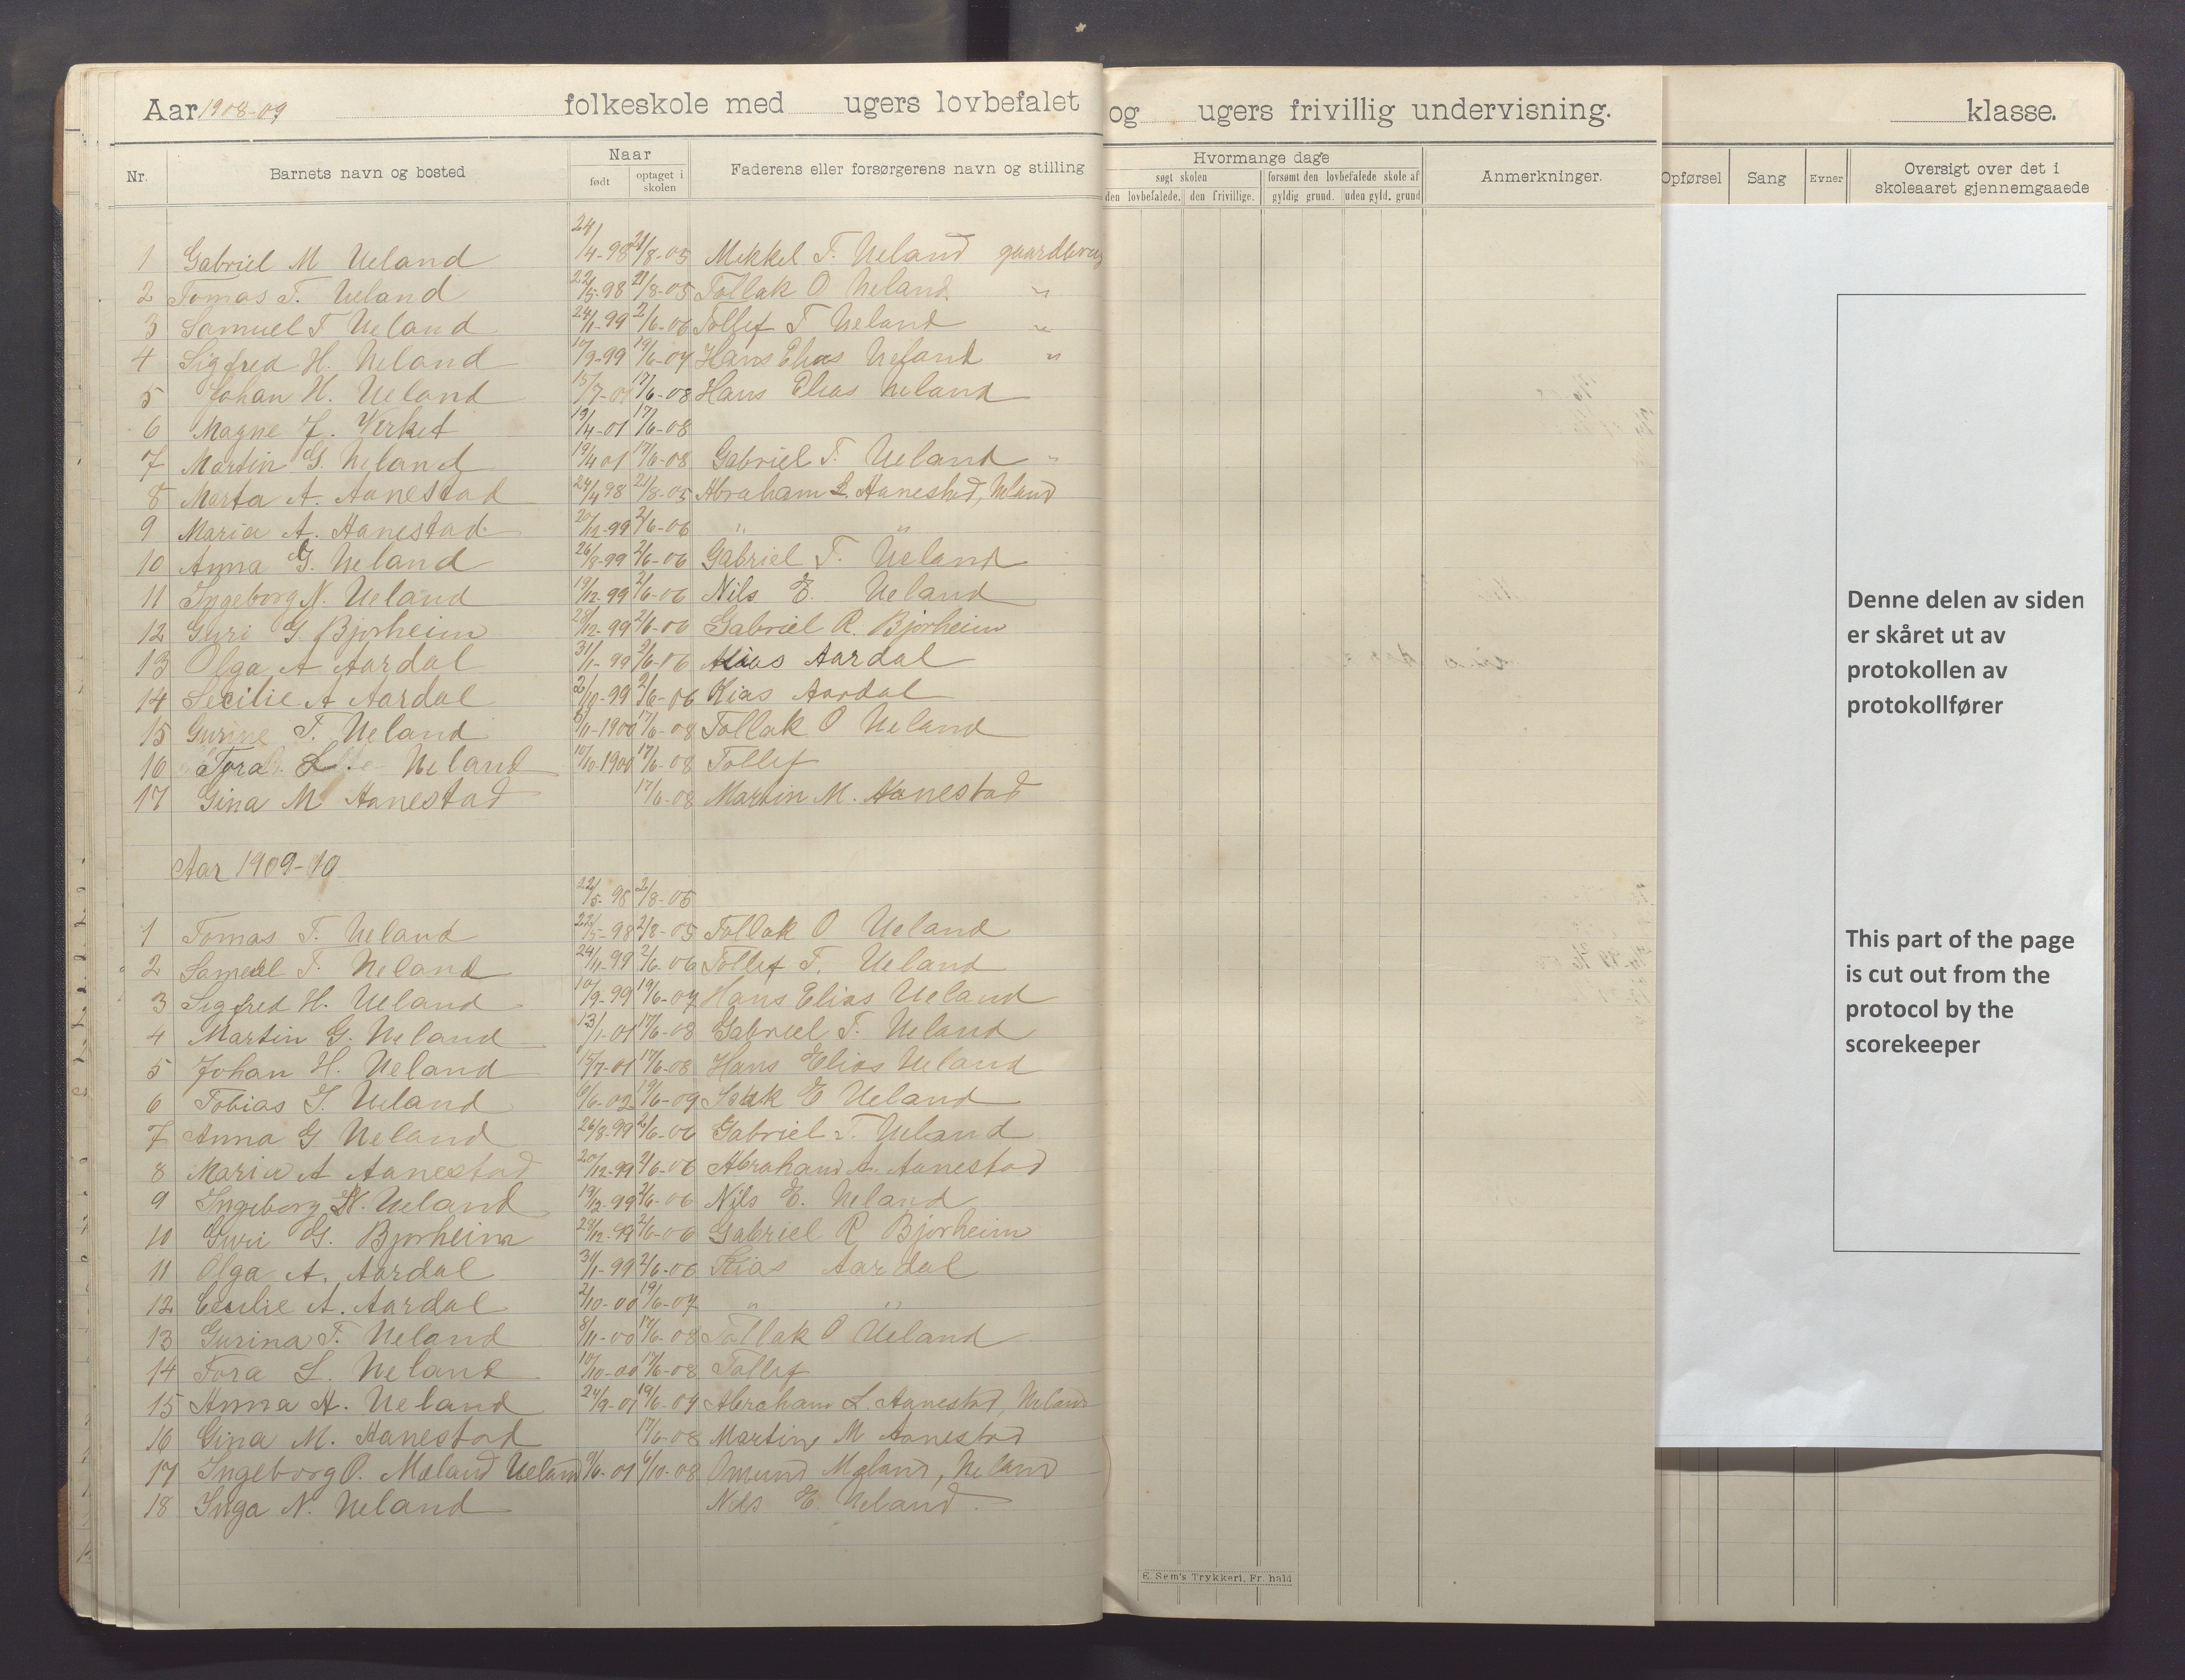 Aar 1908-09 folkeskole med ugers lovbefalet og ugers frivillig undervisning. klasse.
Nr. Barnets navn og bosted Naar født optaget i skolen Faderens eller forsørgerens navn og stilling Hvormange dage søgt skolen den lovbefalede. den frivillige. forsømt den lovbefalede skole af gyldig grund. uden gyld. grund Anmerkninger. Opførsel Sang Evner Oversigt over det i skoleaaret gjennemgaaede
1 Gabriel M Ueland 24/4-98 21/8-05 Mikkel T. Ueland
2 Tomas T. Ueland 22/5-98 21/8-05 Tollak O Ueland "
3 Samuel T Ueland 24/11-99 2/6-06 Tollef T Ueland "
4 Sigfred H. Ueland 10/9-99 19/6-07 Hans Elias Ueland "
5 Johan H. Ueland 15/7-01 17/6-08 Hans Elias Ueland
6 Magne J. Virket 19/4-01 17/6-08
7 Martin G. Ueland 19/4 01 17/6-08 Gabriel T. Ueland "
8 Marta A. Aanestad 24/4 98 21/8-05 Abraham L. Aanestad, Ueland
9 Maria A. Aanestad 20/12-99 2/6-06 " "
10 Anna G. Ueland 26/8-99 2/6-06 Gabriel T. Ueland
11 Ingeborg N. Ueland 19/12-99 2/6-06 Nils E. Ueland
12 Guri G. Bjorheim 28/12-99 2/6-06 Gabriel R. Bjorheim
13 Olga A Aardal 31/1-99 2/6-06 Aardal
14 Secilie A Aardal 2/10-99 2/6-06 Aardal
15 Gurine T. Ueland 8/11-1900 17/6-08 Tollak O Ueland
16 Tora L. Ueland 10/10-1900 17/6-08 Tollef
17 Gina M Aanestad 17/6-08 Martin M. Aanestad
Aar 1909-10
22/5-98 2/8-05
1 Tomas T. Ueland 22/5-98 2/8-05 Tollak O Ueland
2 Samuel T. Ueland 24/11-99 2/6-06 Tollef T. Ueland
3 Sigfred H. Ueland 10/9-99 19/6-07 Hans Elias Ueland
4 Martin G. Ueland 13/1-01 17/6-08 Gabriel T. Ueland
5 Johan H. Ueland 15/7-01 17/6-08 Hans Elias Ueland
6 Tobias I. Ueland 6/6-02 19/6-09 Isak E Ueland
7 Anna G Ueland 26/8-99 2/6-06 Gabriel T. Ueland
8 Maria A Aanestad 20/12-99 2/6-06 Abraham Aanestad
9 Ingeborg N. Ueland 19/12-99 2/6-06 Nils E. Ueland
10 Guri G. Bjorheim 28/12-99 2/6-06 Gabriel R Bjorheim
11 Olga A. Aardal 31/1-99 2/6-06 Aardal
12 Cecilie A. Aardal 2/10-00 19/6-07 " "
13 Gurina T. Ueland 8/11-00 17/6-08 Tollak O Ueland
14 Tora L. Ueland 10/10-00 17/6-08 Tollef
15 Anna A. Ueland 24/9-01 19/6-09 Abraham L. Aanestad, Ueland
16 Gina M. Aanestad 17/6-08 Martin M Aanestad
17 Ingeborg O. Mæland Ueland 9/6-01 6/10-08 Omund Mæland, Ueland
18 Inga N. Ueland Nils E. Ueland
E. Sem's Trykkeri, Fr. hald
Denne delen av siden
er skåret ut av
protokollen av
protokollfører
This part of the page
is cut out from the
protocol by the
scorekeeper